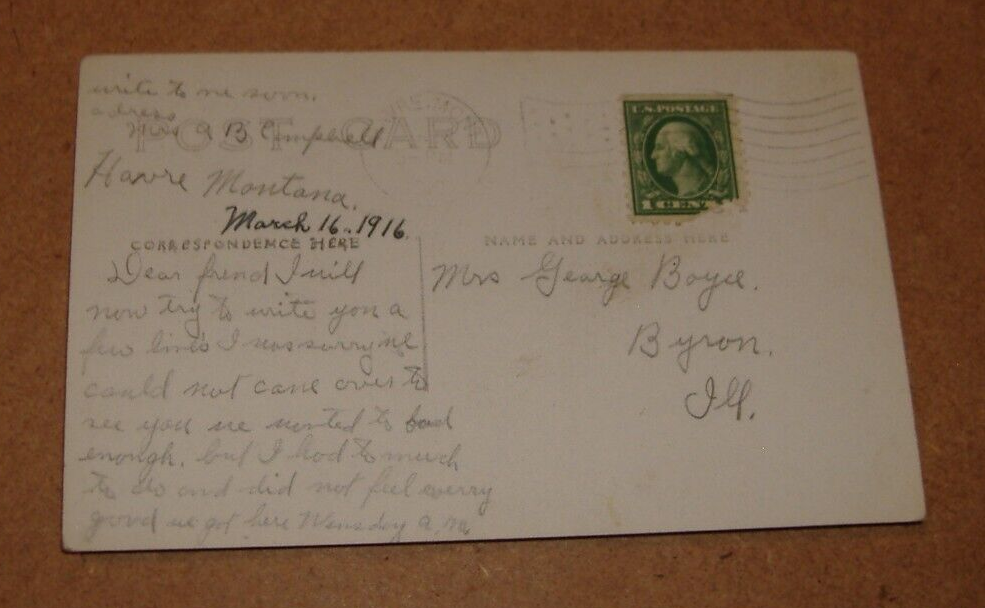 write to me soon.
adress
Mrs A B Campbell
POST CARD
Havre Montana.
March 16. 1916.
CORRESPONDENCE HERE
Dear frend I will
now try to write you a
few lines I was sorry we
could not came over to
see you we wanted to bad
enough. but I had to much
to do and did not feel very
good we got here Wensday a.m.
U.S. POSTAGE
1 CENT
NAME AND ADDRESS HERE
Mrs George Boyce.
Byron.
Ill.